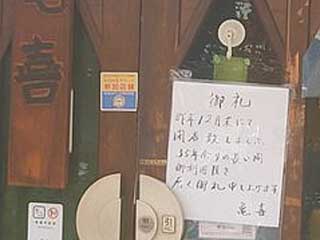 亀喜
参加店舗
御礼
昨年12月末にて
閉店致しました
35年余りの長い間
御利用頂き
厚く御礼申し上げます
亀喜
引